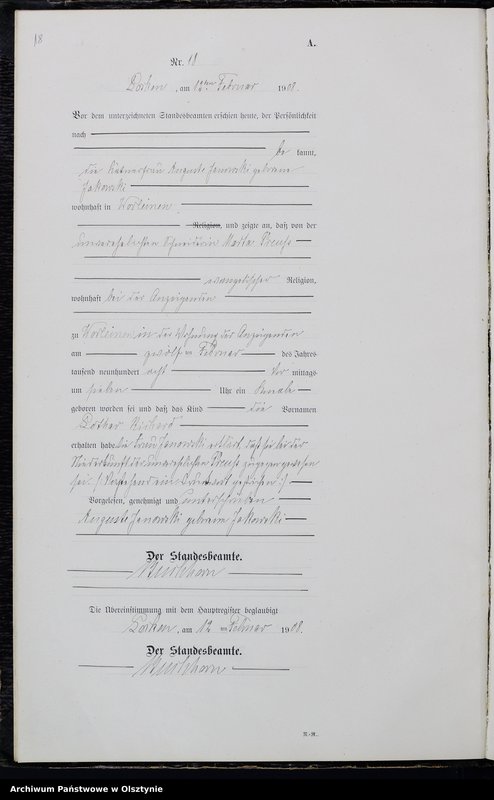 18
A.
Nr. 18
Locken, am 12ten Februar 1908.
Vor dem unterzeichneten Standesbeamten erschien heute, der Persönlichkeit
nach
be kannt,
die Kätnerfrau Auguste Janowski geborene
Jakowski
wohnhaft in Worleinen
Religion, und zeigte an, daß von der
unverehelichten Schneiderin Marta Preuss
evangelischer Religion,
wohnhaft bei der Anzeigenden
zu Worleinen in der Wohnung der Anzeigenden
am zwölften Februar des Jahres
tausend neunhundert acht Vor mittags
um sieben Uhr ein Knabe
geboren worden sei und daß das Kind die Vornamen
Lothar Richard
erhalten habe. Die Frau Janowski erklärt, daß sie bei der
Niederkunft der unverehelichten Preuss zugegen gewesen
sei. (Vorstehend ein Druckwort gestrichen.)
Vorgelesen, genehmigt und unterschrieben
Auguste Janowski geborene Jakowski
Der Standesbeamte.
Die Übereinstimmung mit dem Hauptregister beglaubigt
Locken, am 12 ten Februar 1908.
Der Standesbeamte.
R.-R.
Archiwum Państwowe w Olsztynie